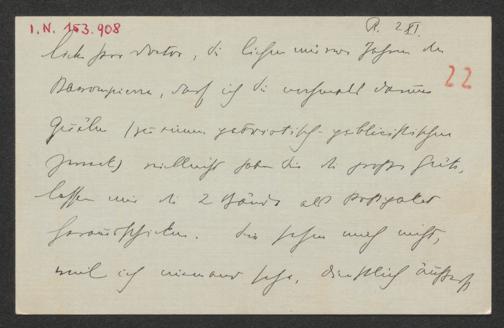 I.N. 163.908
R. 2 XI.
Lieber Herr Doctor, die liehen mir vor Jahren den
Bassompierre, darf ich Sie nochmals darum
22
quälen (zu einem patriotisch-publicistischen
Zweck) vielleicht haben Sie die große Güte,
lassen mir die 2 Bände als Postpaket
herausschicken. Sie sehen mich nicht,
weil ich niemand sehe, dienstlich äußerst